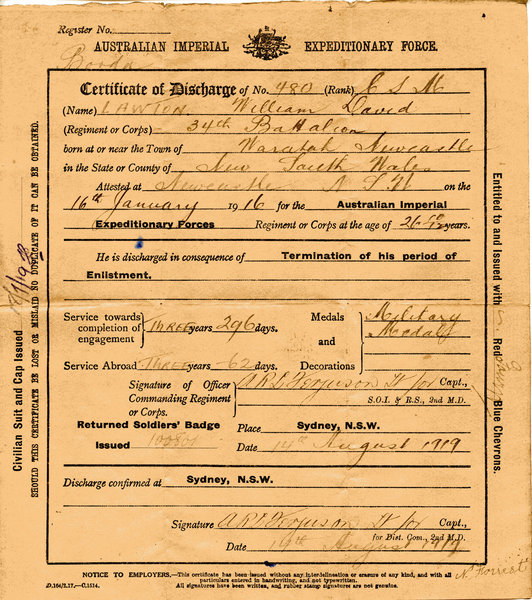 Register No.
AUSTRALIAN IMPERIAL EXPEDITIONARY FORCE.
Certificate of Discharge of No. 480 (Rank) C S M
(Name) LAWTON William David
(Regiment or Corps) 34th Battalion
born at or near the Town of Waratah Newcastle
in the State or County of New South Wales
Attested at Newcastle N.S.W on the
16th January 1916 for the Australian Imperial
Expeditionary Forces Regiment or Corps at the age of 26 years.
He is discharged in consequence of Termination of his period of
Enlistment.
Service towards completion of engagement THREE years 296 days.
Medals and Decorations Military Medal
Service Abroad THREE years days.
Signature of Officer Commanding Regiment or Corps. A R L Ferguson Lt for Capt.,
S.O.I. & R.S., 2nd M.D.
Returned Soldiers' Badge
Issued
Place Sydney, N.S.W.
Date 14th August 1919
Discharge confirmed at Sydney, N.S.W.
Signature A R L Ferguson Lt for Capt.,
for Dist. Com., 2nd M.D.
Date 14th August 1919
N. Forrest
D.164/2.17.—C.1514.
NOTICE TO EMPLOYERS.—This certificate has been issued without any interlineation or erasure of any kind, and with all
particulars entered in handwriting, and not typewritten.
All signatures have been written, and rubber stamp signatures are not genuine.
Civilian Suit and Cap Issued
SHOULD THIS CERTIFICATE BE LOST OR MISLAID NO DUPLICATE OF IT CAN BE OBTAINED.
Entitled to and Issued with Red Blue Chevrons.